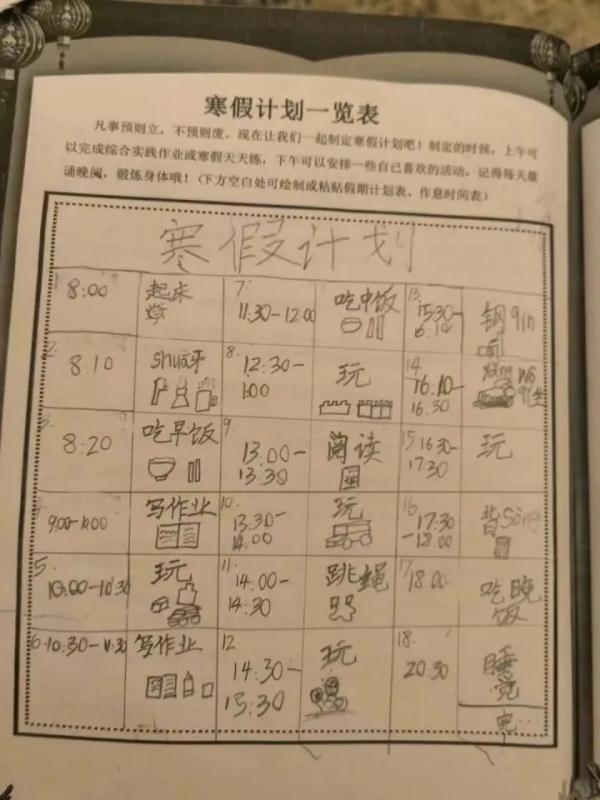 寒假计划一览表
凡事预则立，不预则废。现在让我们一起制定寒假计划吧！制定的时候，上午可
以完成综合实践作业或寒假天天练，下午可以安排一些自己喜欢的活动，记得每天晨
诵晚阅，锻炼身体哦！（下方空白处可绘制或粘贴假期计划表、作息时间表）
寒假计划
1 8:00 起床
2 8:10 shuā牙
3 8:20 吃早饭
4 9:00-10:00 写作业
5. 10:00-10:30 玩
6. 10:30-11:30 写作业
7. 11:30-12:00 吃中饭
8. 12:30-1:00 玩
9. 13:00-13:30 阅读
10. 13:30-14:00 玩
11. 14:00-14:30 跳绳
12 14:30-15:30 玩
13. 15:30-16:10 钢qin
14. 16:10-16:30
15 16:30-17:30 玩
16. 17:30-18:00 背Sòng
17 18:00 吃晚饭
18. 20:30 睡觉
完…